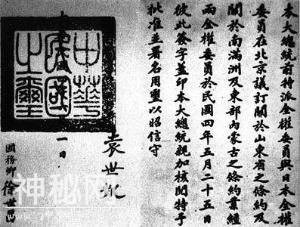 本大總統前特派全權委員與日本全權
委員在北京議訂關於山東省之條約及
關於南滿洲及東部內蒙古之條約業經
兩全權委員於民國四年五月二十五日
彼此簽字蓋印本大總統親加核閱特予
批准並署名用璽以昭信守
袁世凱
中華民國之璽
一日
國務卿徐世
神秘网